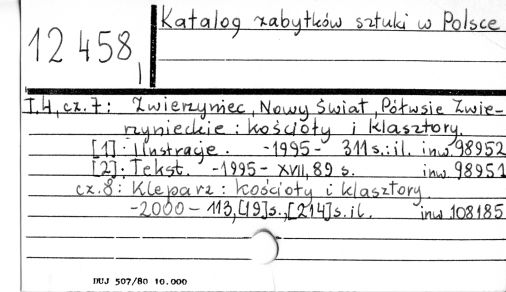 Katalog zabytków sztuki w Polsce
12 458,
I
T.4, cz. 7: Zwierzyniec, Nowy Świat, Półwsie Zwie-
rzynieckie : kościoły i klasztory.
[1]: Ilustracje. -1995- 311 s.: il. inw. 98952
[2]: Tekst. -1995- XVII, 89 s. inw. 98951
cz. 8: Kleparz : kościoły i klasztory.
-2000- 113, [19] s., [214] s. il. inw 108185
DUJ 507/80 10.000